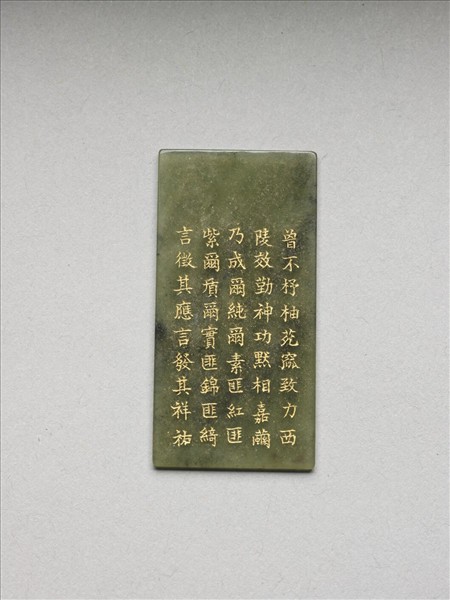 曾不杼柚苑窳致力西
陵效勤神功默相嘉繭
乃成爾純爾素匪紅匪
紫爾質爾實匪錦匪綺
言徵其應言發其祥祐